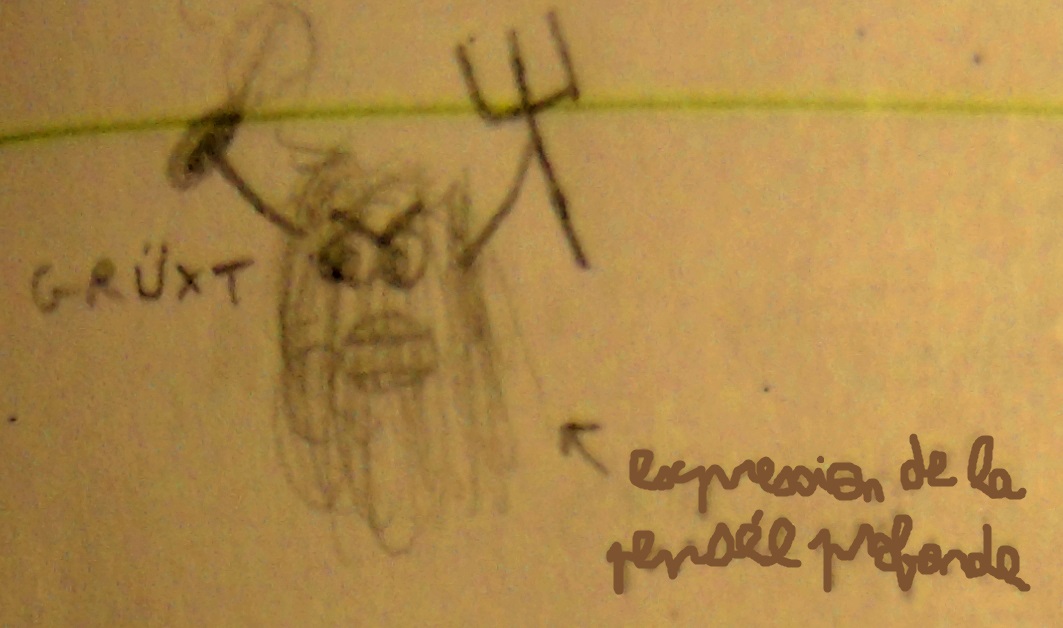 GRÜXT
expression de la
pensée profonde